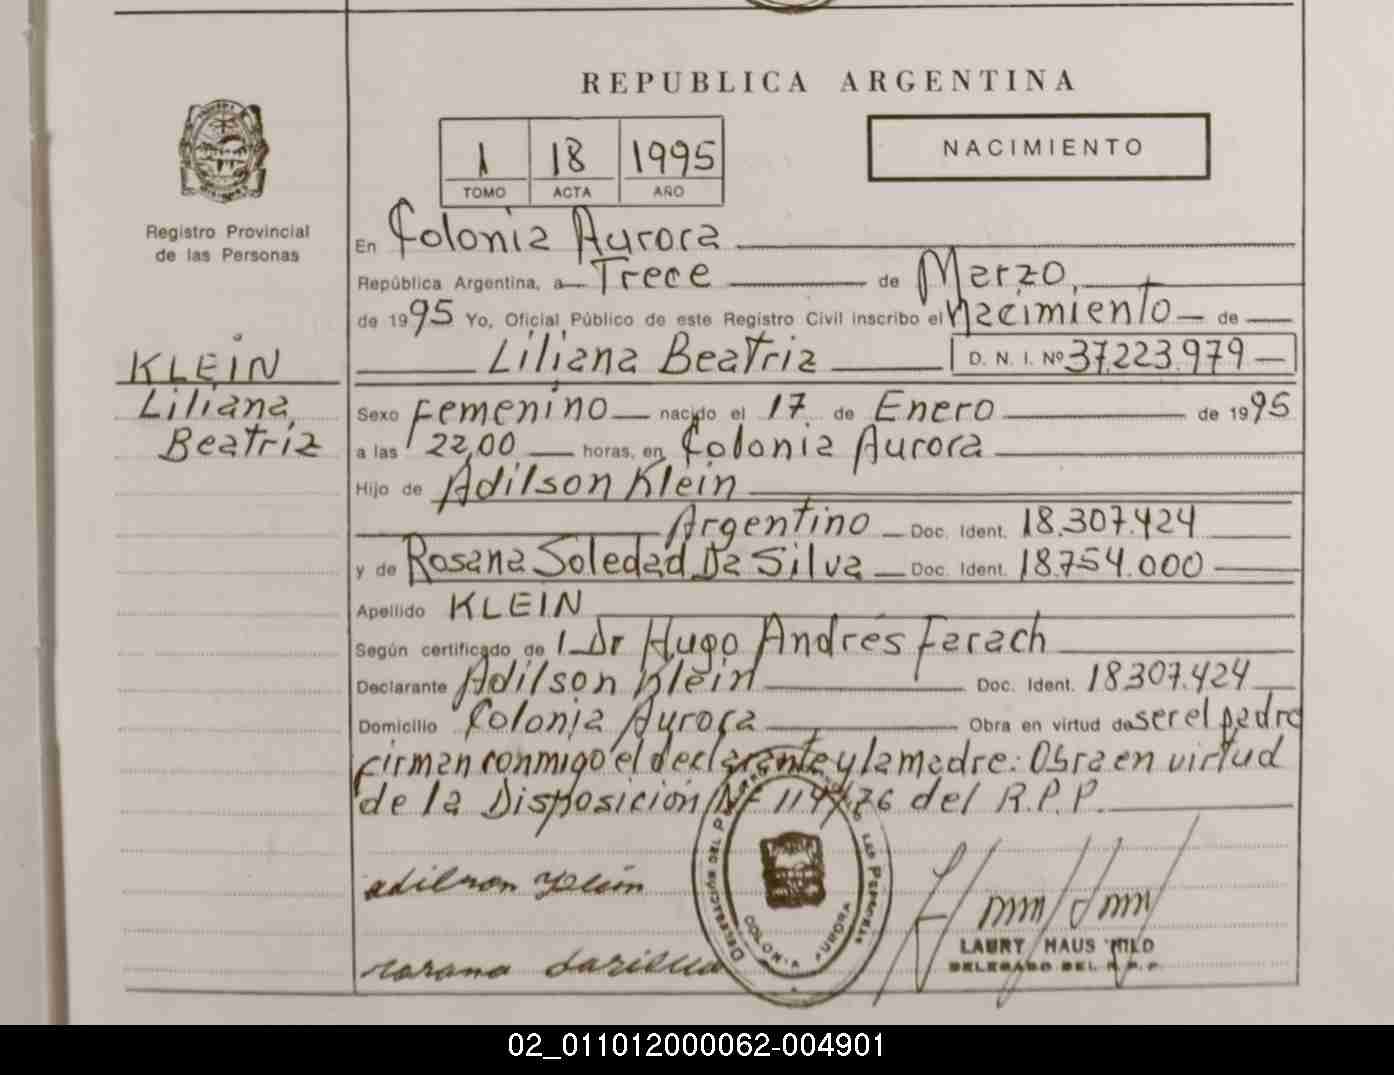 REPUBLICA ARGENTINA
1 18 1995
TOMO ACTA AÑO
NACIMIENTO
Registro Provincial
de las Personas
KLEIN
Liliana
Beatriz
En Colonia Aurora
República Argentina, a Trece de Marzo,
de 1995 Yo, Oficial Público de este Registro Civil inscribo el Nacimiento de
Liliana Beatriz D. N. I. Nº 37.223.979
Sexo Femenino nacido el 17 de Enero de 1995
a las 22,00 horas, en Colonia Aurora
Hijo de Adilson Klein
Argentino Doc. Ident. 18.307.424
y de Rosana Soledad Da Silva Doc. Ident. 18.754.000
Apellido KLEIN
Según certificado de l Dr Hugo Andrés Farach
Declarante Adilson Klein Doc. Ident. 18307.424
Domicilio Colonia Aurora Obra en virtud de ser el padre
firman conmigo el declarante y la madre: Obra en virtud
de la Disposición Nº 114/76 del R.P.P.
adilson Klein
COLONIA AURORA
LAURY HAUS WILD
DELEGADO DEL R.P.P.
02_011012000062-004901